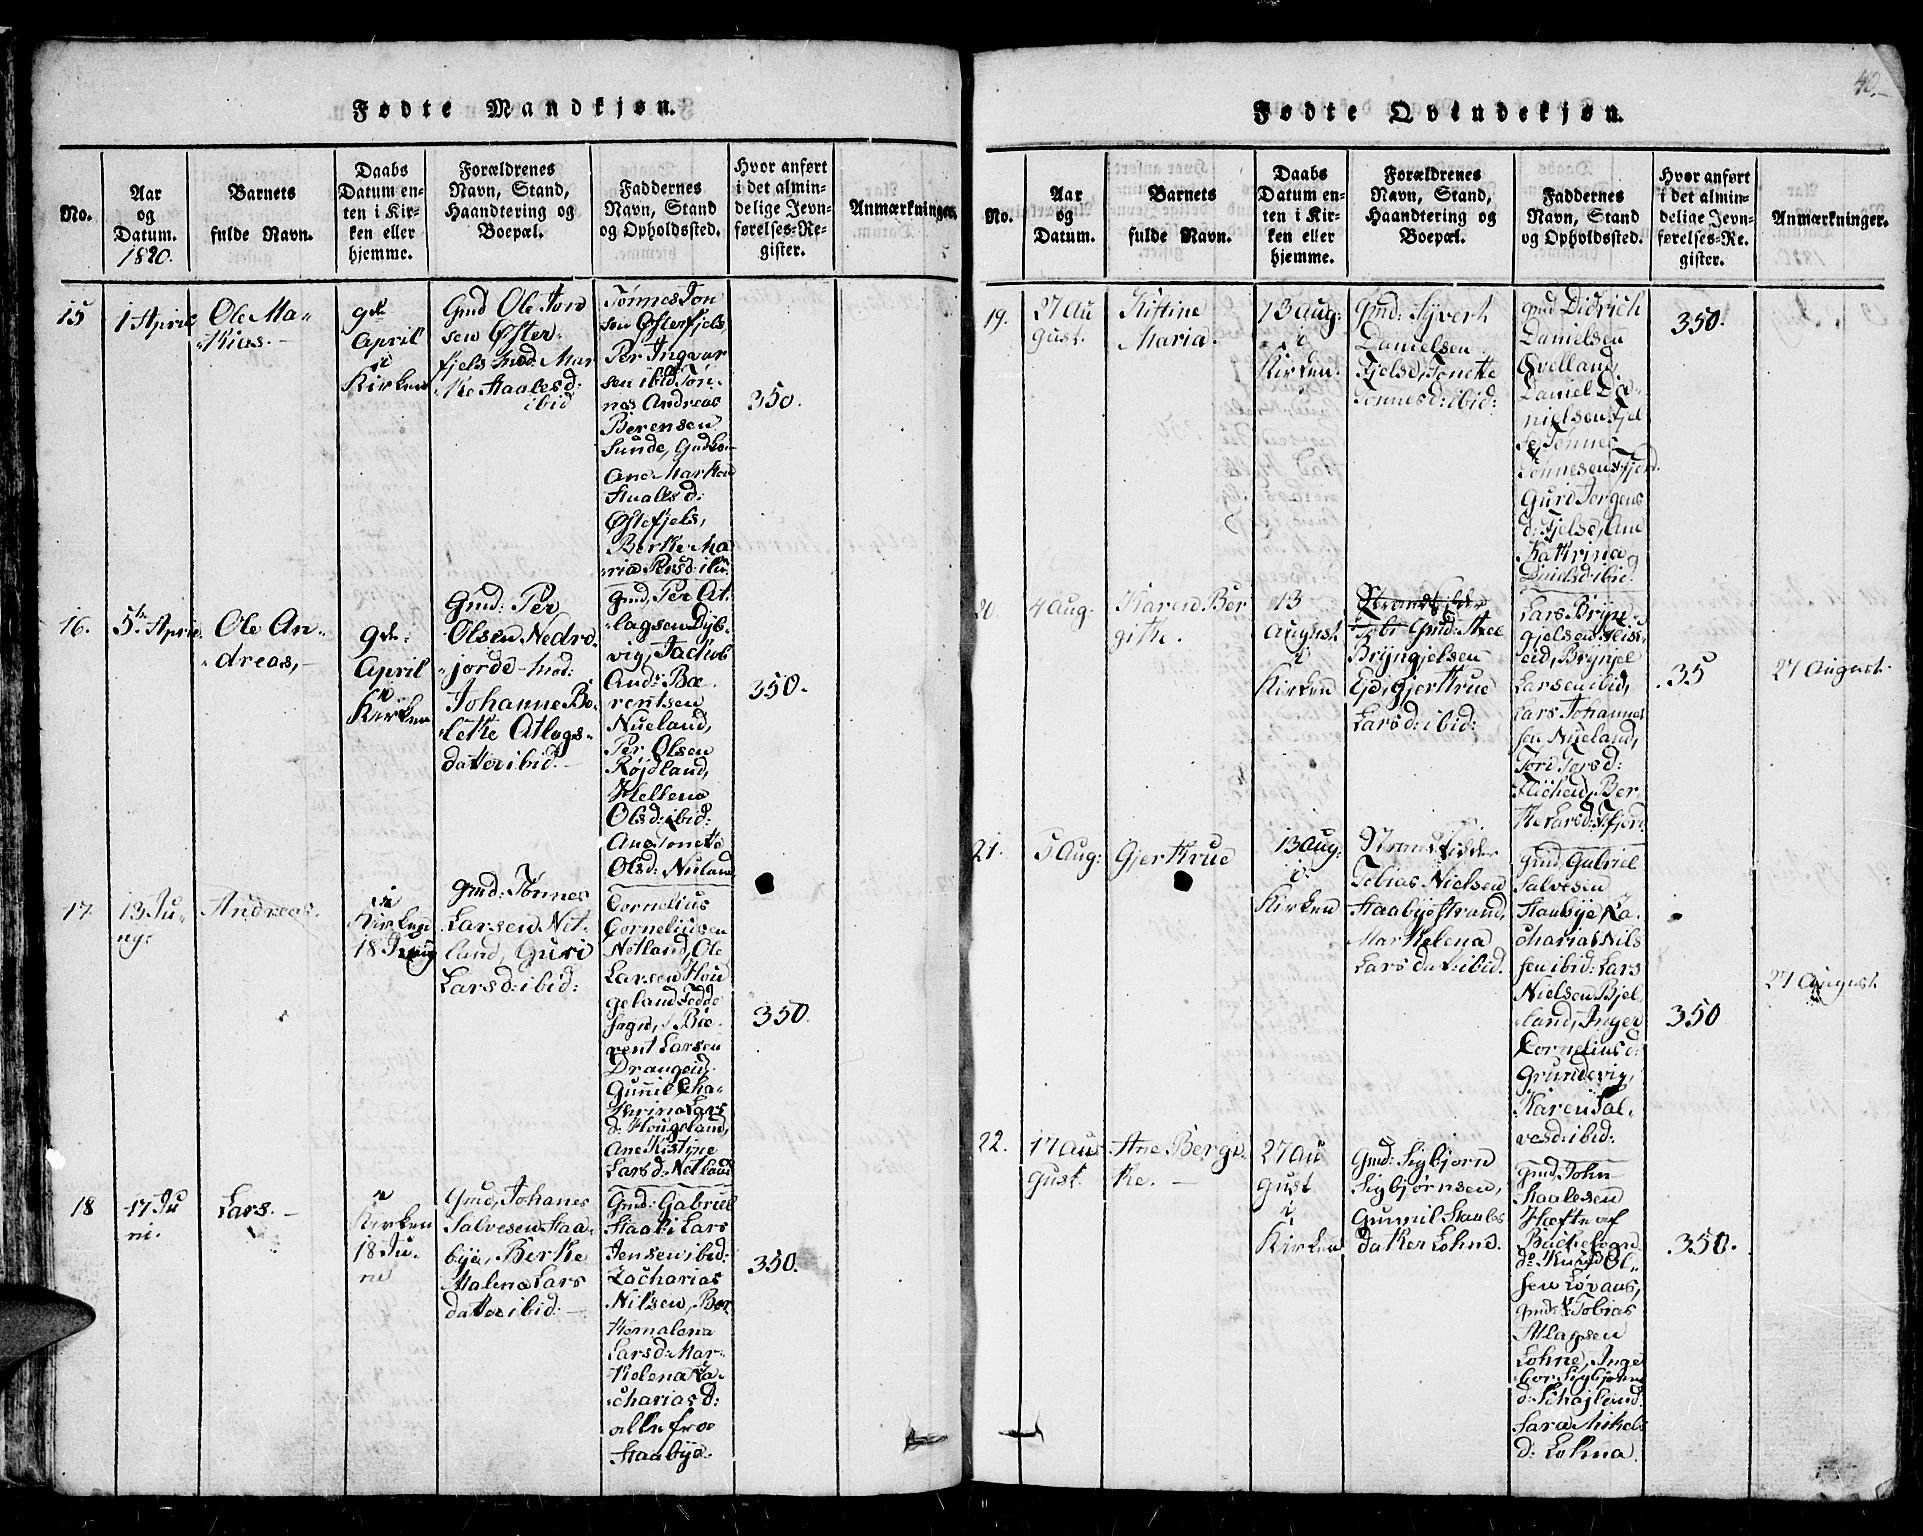 Fødte Mandkjøn.
No.
Aar
og
Datum.
1820.
Barnets
fulde Navn.
Daabs
Datum en-
ten i Kir-
ken eller
hjemme.
Forældrenes
Navn, Stand,
Haandtering og
Boepæl.
Faddernes
Navn, Stand
og Opholdssted.
Hvor anført
i det almin-
delige Jevn-
førelses-Re-
gister.
Anmærkninger.
15
1 April
Ole Ma-
kias.-
9de
April
i
Kirken
Gmd Ole Tor
sen Øster-
fjels hod Mar
the Staalesd:
ibid
Tønnes Ton
sen Østerfjels,
Per Ingvar
sen ibid Tøn-
nes Andreas
Berensen
Sunde,
Ane Marthe
Staalesd:
Østefjels,
Berthe Ma
ria
350.
16.
5te April
Ole An-
dreas,-
9de
April
i
Kirken
Gmd: Per
Olsen Nedre
jorde - hod:
Johanne Bo-
lette Atlogs-
datter ibid.-
Gmd, Per At-
lagsen Dyb-
vig, Jachob
Ands: Bæ-
rentsen
Nueland,
Per Olsen
Røjdland,
Hellena
Olsd: ibid:
Ane Tonette
Olsd: Nuland
350.
17.
13 Ju-
ny:
Andreas.
i
Kirken
18 Juny
Gmd: Tønnes
Larsen Net-
land, Guri
Larsd: ibid:
Cornelius
Corneliussen
Netland, Ole
Larsen Hou
geland Fedde
Sogn, Bæ-
rent Larsen
Drangeid,
Gunnil Cha-
thrina Lars
d: Hougeland,
Ane Kistine
Larsd: Netland
350.
18
17 Ju
ni.
Lars.-
i
Kirken
18 Ju-
ni
Gmd, Johanes
Salvesen Staa-
bye, Berthe
Malena Lars
datter ibid:-
Gmd: Gabriel
Staabi Lars
Jensen ibid.
Zacharias
Nilsen, Ber
themalena
Larsd: Mar-
thelena Za-
charias d:
alle fra
Staabye.
350.
40.-
Fødte Qvindekjøn.
No.
Aar
og
Datum.
Barnets
fulde Navn.
Daabs
Datum en-
ten i Kir-
ken eller
hjemme.
Forældrenes
Navn, Stand,
Haandtering og
Boepæl.
Faddernes
Navn, Stand
og Opholdssted.
Hvor anført
i det almin-
delige Jevn-
førelses-Re-
gister.
Anmærkninger.
19.
27 Au
gust.
Kistine
Maria.
13 Aug:
i
Kirken.
Gmd: Syvert
Danielsen
Fjelse, Tonette
Tonnesd: ibid:
Gmd Didrich
Danielsen
Qvelland,
Daniel Da-
nielsen Fjel
se, Tønnes
Tonnesen
Guri Jorgens
d: Fjelse, Ane
Kathrina
ibid.
350.
20.
4 Aug.
Karen Ber
githe.
13
August
i
Kirken
Gmd: Axel
Bryngjelsen
Eje, Gjertrue
Larsd: ibid:
Lars Bryn-
gjelsen
eid, Brynjel
Larsen ibid,
Lars Johannes
sen Nueland,
Tore Torsd:
Flichen, Ber-
the Larsd:
35
27 August.
21.
5 Aug:
Gjertrue
13 Aug:
i
Kirken
Strandsidder
Tobias Nielsen
Staabyestrand,
Marthelena
Larsdat: ibid.
Gmd: Gabriel
Salvesen
Staabye, Za-
charias Nils
sen ibid: Lars
Nielsen Bjel-
land, Inger
Cornelius d:
Grundevig,
Karen Sal-
vesd: ibid:
350
27 August
22.
17 Au
gust.
Ane Bergi-
the.-
27 Au
gust
i
Kirken
Gmd: Sigbjørn
Sigbjørnsen,
Gunnil Staales
datter Lohne.
Gmd: John
Staalesen
Hæfte af
Bachevogn
do Knud Ol-
sen Løvaas,
Gmd: Tobias
Atlagsen
Lohne, Inge
bor Sigbjørns
d:
Sara Mikels
d: Lohna.
350.